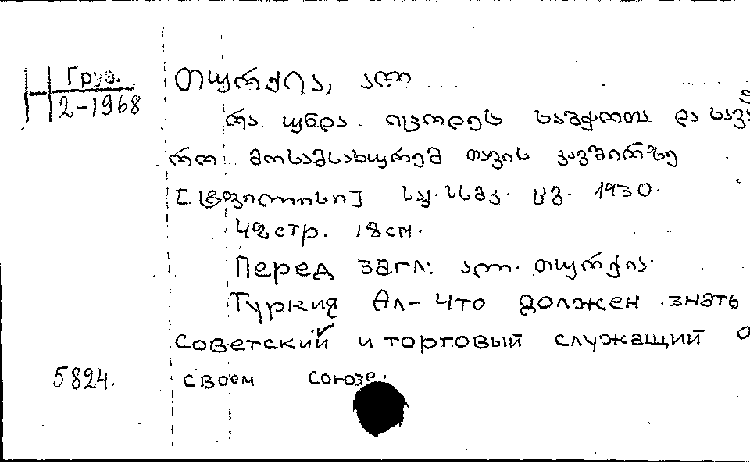 Н Груз.
2-1968
თურქია, ალ
რა უნდა იცოდეს საბჭოთა და სავა
რო მოსამსახურემ თავის კავშირზე
[ტფილისი] საქ. სსმკ. ცგ. 1930.
48 стр. 18 см.
Перед загл: ალ. თურქია.
Туркия Ал- Что должен знать
советский и торговый служащий о
5824. своем союзе.